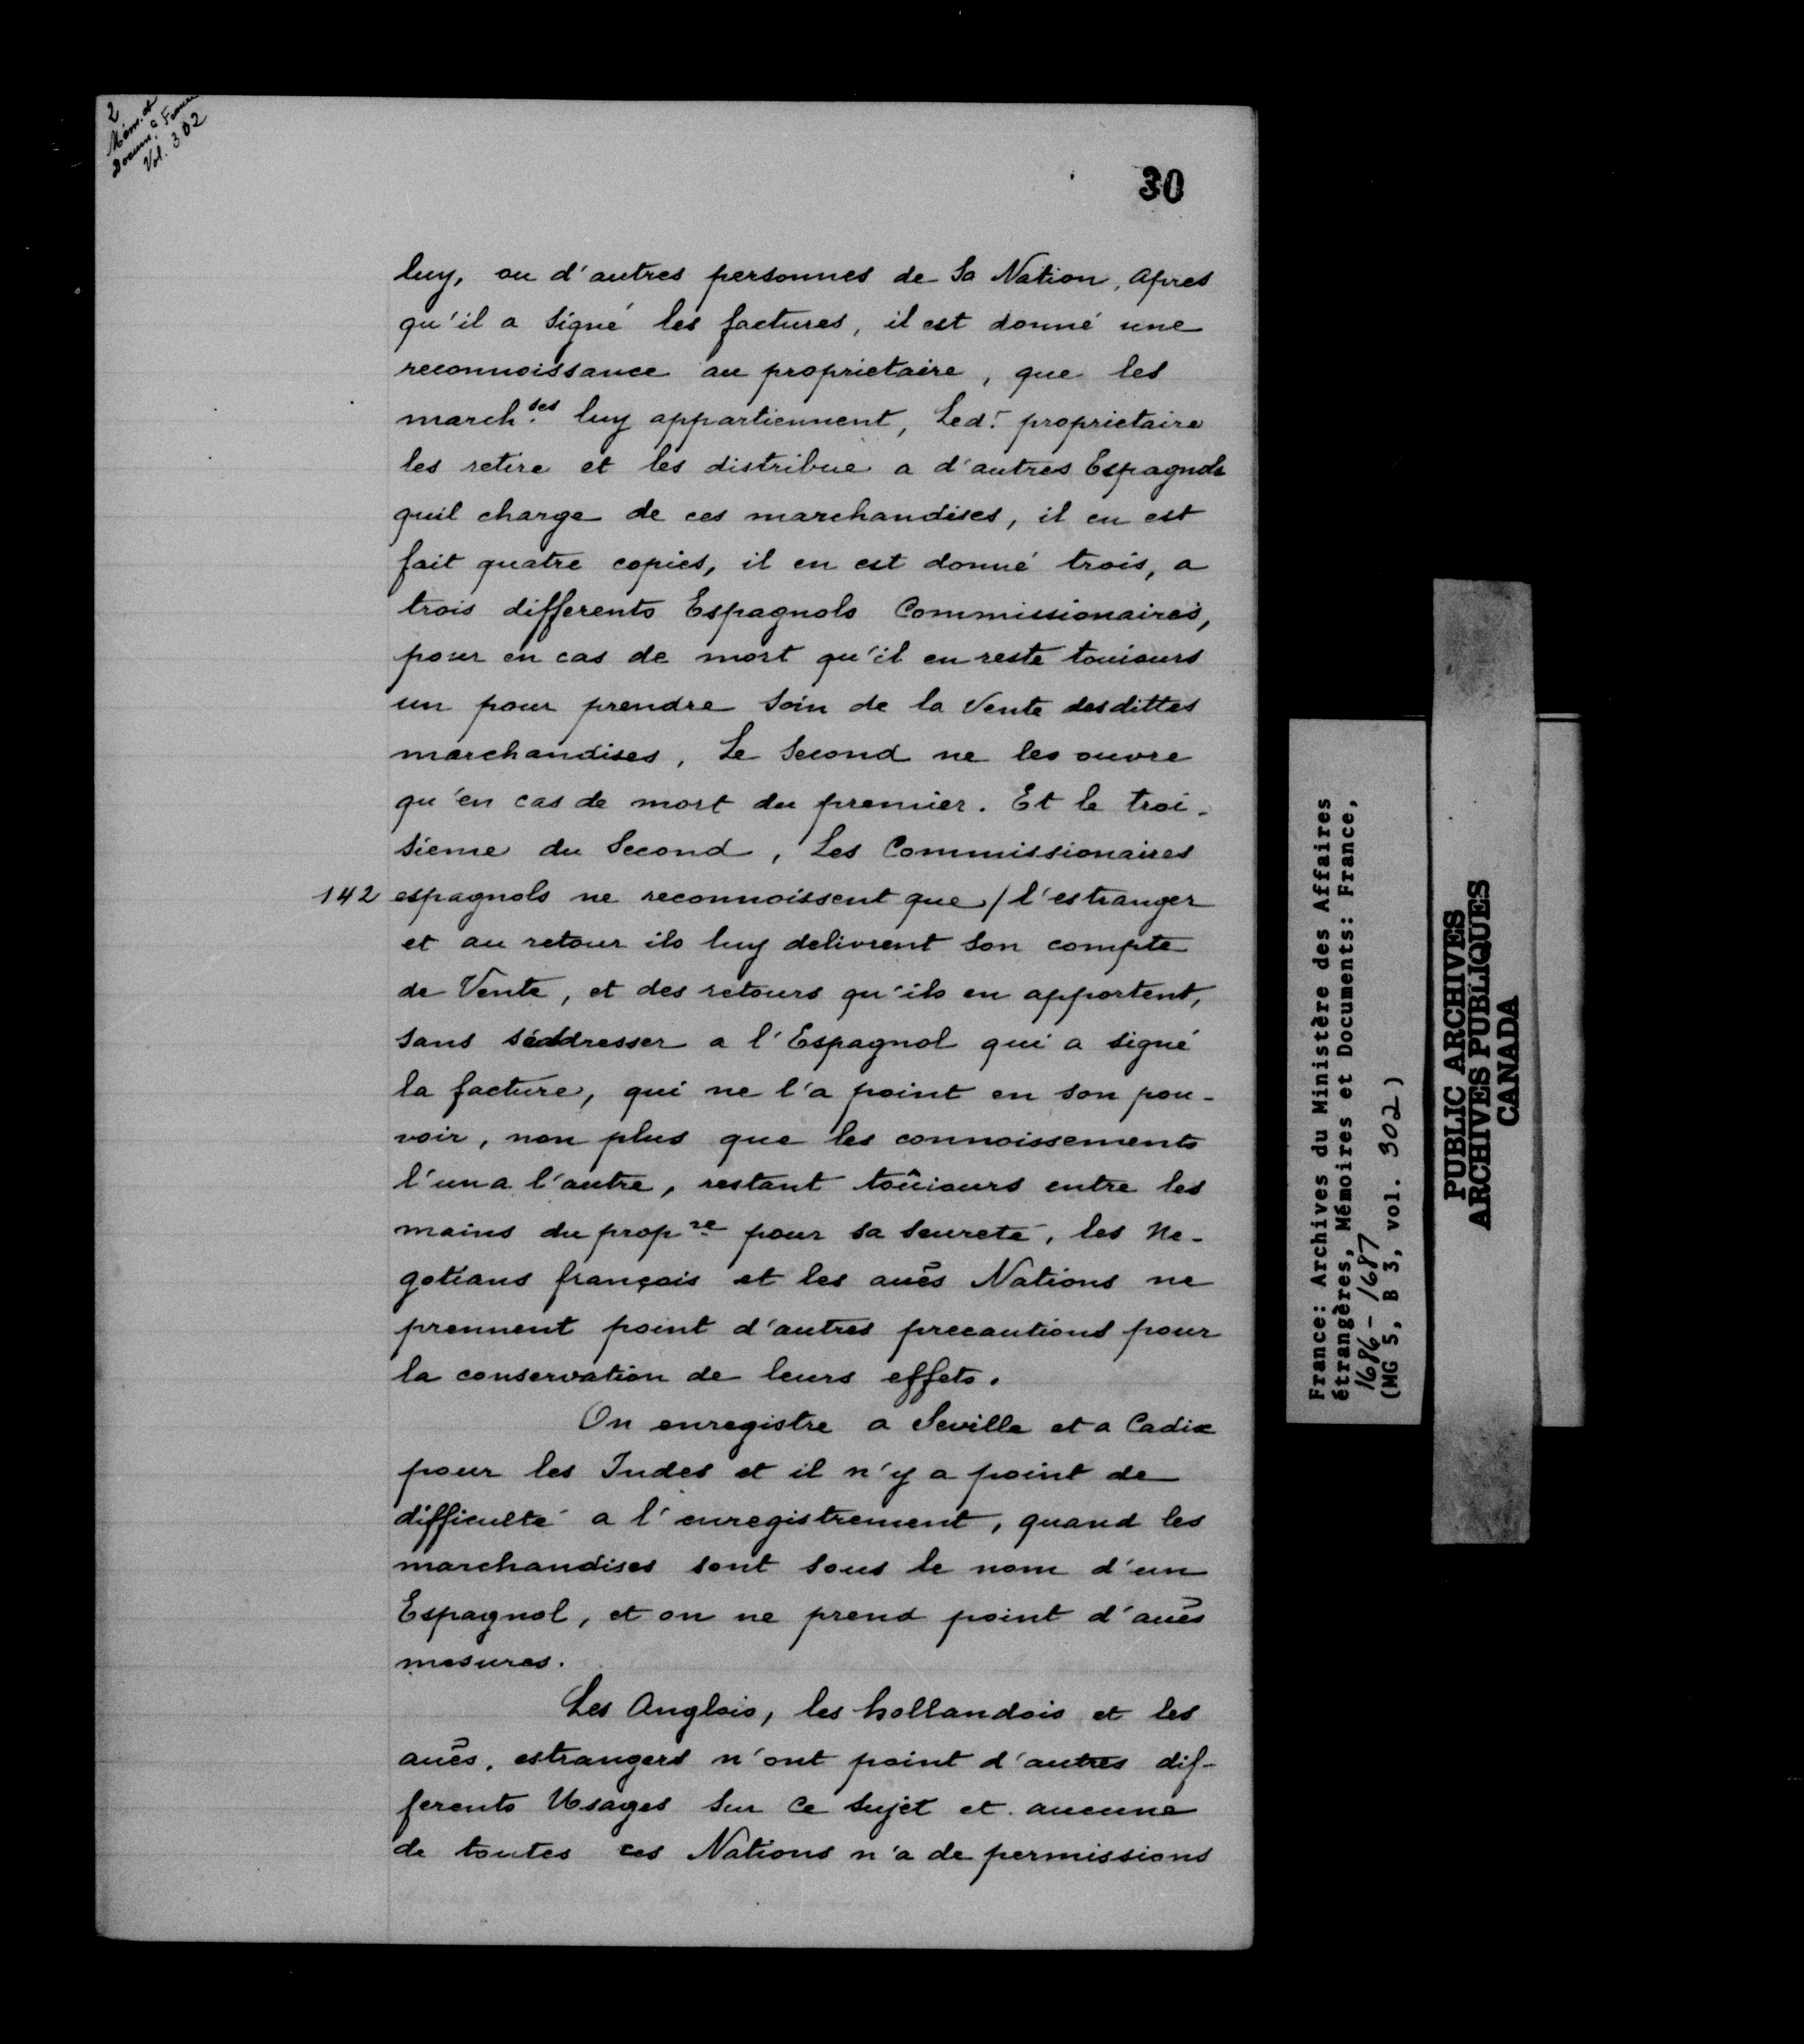 2
Mém. et
Docum.s France
Vol. 302
30
luy, ou d'autres personnes de Sa Nation, Apres
qu'il a Signé les factures, il est donné une
reconnoissance au proprietaire, que les
march.ses luy appartiennent, Led.t proprietaire
les retire et les distribue a d'autres Espagnols
quil charge de ces marchandises, il en est
fait quatre copies, il en est donné trois, a
trois differents Espagnols Commissionaires,
pour en cas de mort qu'il en reste touiours
un pour prendre Soin de la Vente desdittes
marchandises, Le Second ne les ouvre
qu'en cas de mort du premier. Et le troi-
sieme du Second, Les Commissionaires
142 espagnols ne reconnoissent que / l'estranger
et au retour ils luy delivrent son compte
de Vente, et des retours qu'ils en apportent,
sans s'addresser a l'Espagnol qui a signé
la facture, qui ne l'a point en son pou-
voir, non plus que les connoissements
l'un a l'autre, restant toûiours entre les
mains du prop.re pour sa seureté, les Ne-
gotians français et les auẽs Nations ne
prennent point d'autres precautions pour
la conservation de leurs effets.
On enregistre a Seville et a Cadix
pour les Indes et il n'y a point de
difficulté a l'enregistrement, quand les
marchandises sont sous le nom d'un
Espagnol, et on ne prend point d'auẽs
mesures.
Les Anglois, les hollandois et les
auẽs, estrangers n'ont point d'autres dif-
ferents Usages sur Ce sujet et aucune
de toutes ces Nations n'a de permissions
France: Archives du Ministère des Affaires
étrangères, Mémoires et Documents: France,
1686-1687
(MG 5, B 3, vol. 302)
PUBLIC ARCHIVES
ARCHIVES PUBLIQUES
CANADA